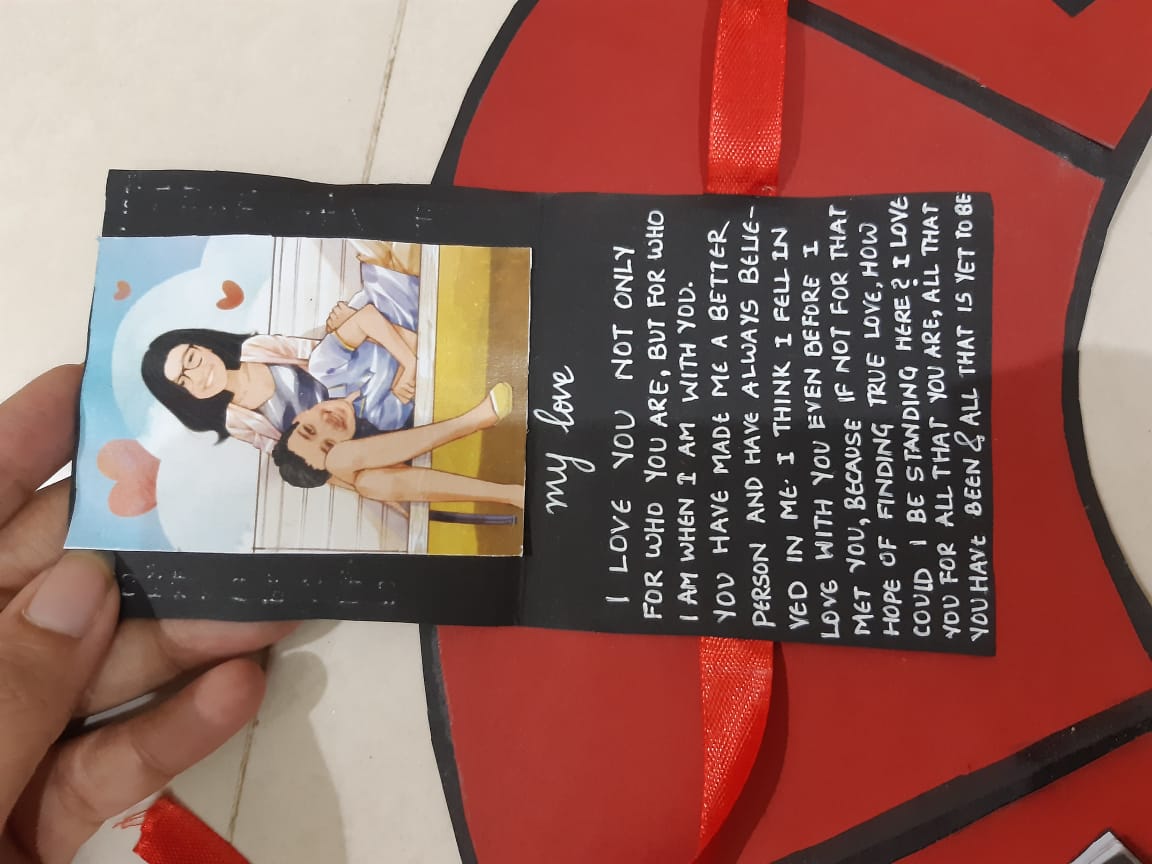 my love
I LOVE YOU NOT ONLY
FOR WHO YOU ARE, BUT FOR WHO
I AM WHEN I AM WITH YOU.
YOU HAVE MADE ME A BETTER
PERSON AND HAVE ALWAYS BELIE-
VED IN ME. I THINK I FELL IN
LOVE WITH YOU EVEN BEFORE I
MET YOU, BECAUSE IF NOT FOR THAT
HOPE OF FINDING TRUE LOVE, HOW
COULD I BE STANDING HERE? I LOVE
YOU FOR ALL THAT YOU ARE, ALL THAT
YOU HAVE BEEN & ALL THAT IS YET TO BE